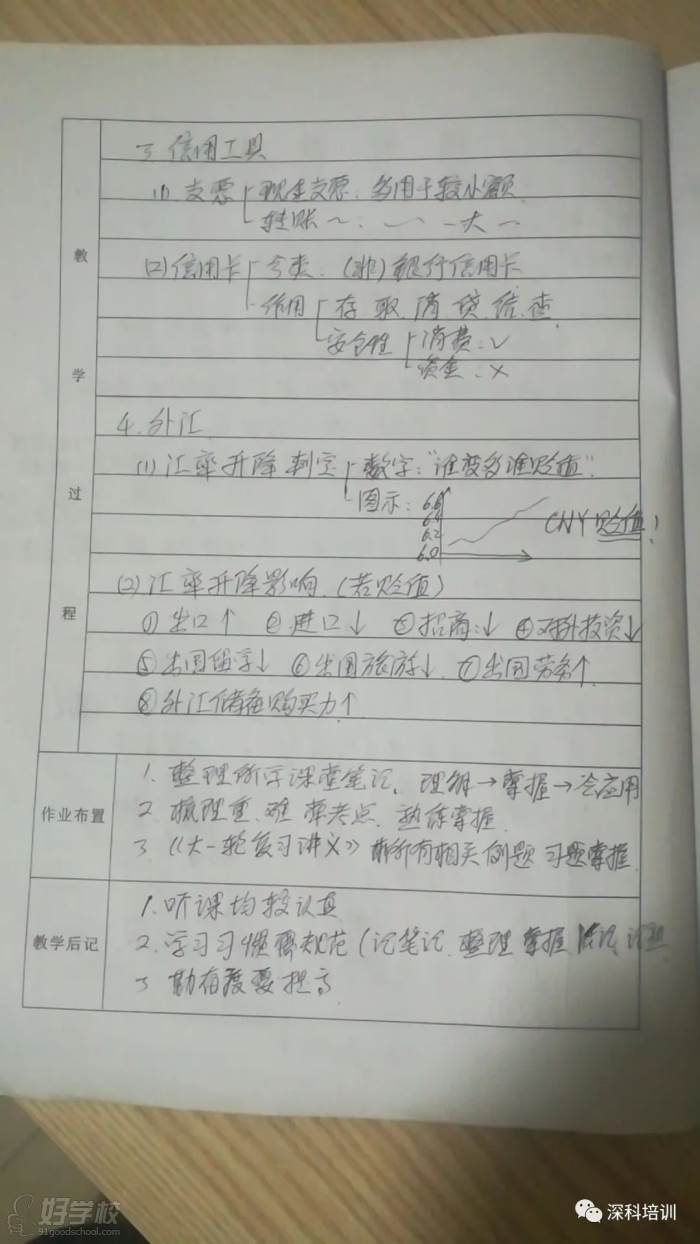 教学过程
3. 信用工具
(1) 支票 现金支票: 多用于较小额
转账~. ~ 大 ~
(2) 信用卡 分类: (非)银行信用卡
作用 存. 取. 消. 贷. 结. 查.
安全性 消费: √
资金: ×
4. 外汇
(1) 汇率升降判定 数字: "谁变多谁贬值"
图示: 6.6
6.4
6.2
6.0
CNY贬值!
(2) 汇率升降影响. (若贬值)
① 出口↑ ② 进口↓ ③招商:↓ ④对外投资↓
⑤出国留学↓ ⑥出国旅游↓ ⑦出国劳务↑
⑧外汇储备购买力↑
作业布置
1. 整理所学课堂笔记, 理解→掌握→会应用
2. 梳理重. 难 常考点. 熟练掌握.
3. 《大一轮复习讲义》 将所有相关例题 习题掌握.
教学后记
1. 听课均较认真
2. 学习习惯需规范 (记笔记. 整理 掌握
3 勤奋度要提高
好学校
91goodschool.com
深科培训